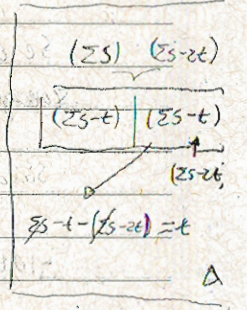 (Σs) (Σs-2t)
(Σs-t) (Σs-t)
(Σs-2t)
Σs-t-(Σs-2t)=t